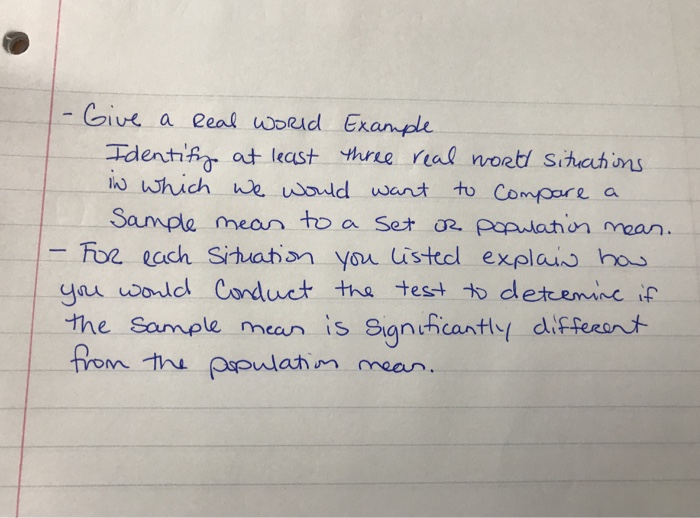 - Give a Real World Example
Identify at least three real world situations
in which we would want to compare a
Sample mean to a set or population mean.
- For each situation you listed explain how
you would Conduct the test to determine if
the sample mean is significantly different
from the population mean.